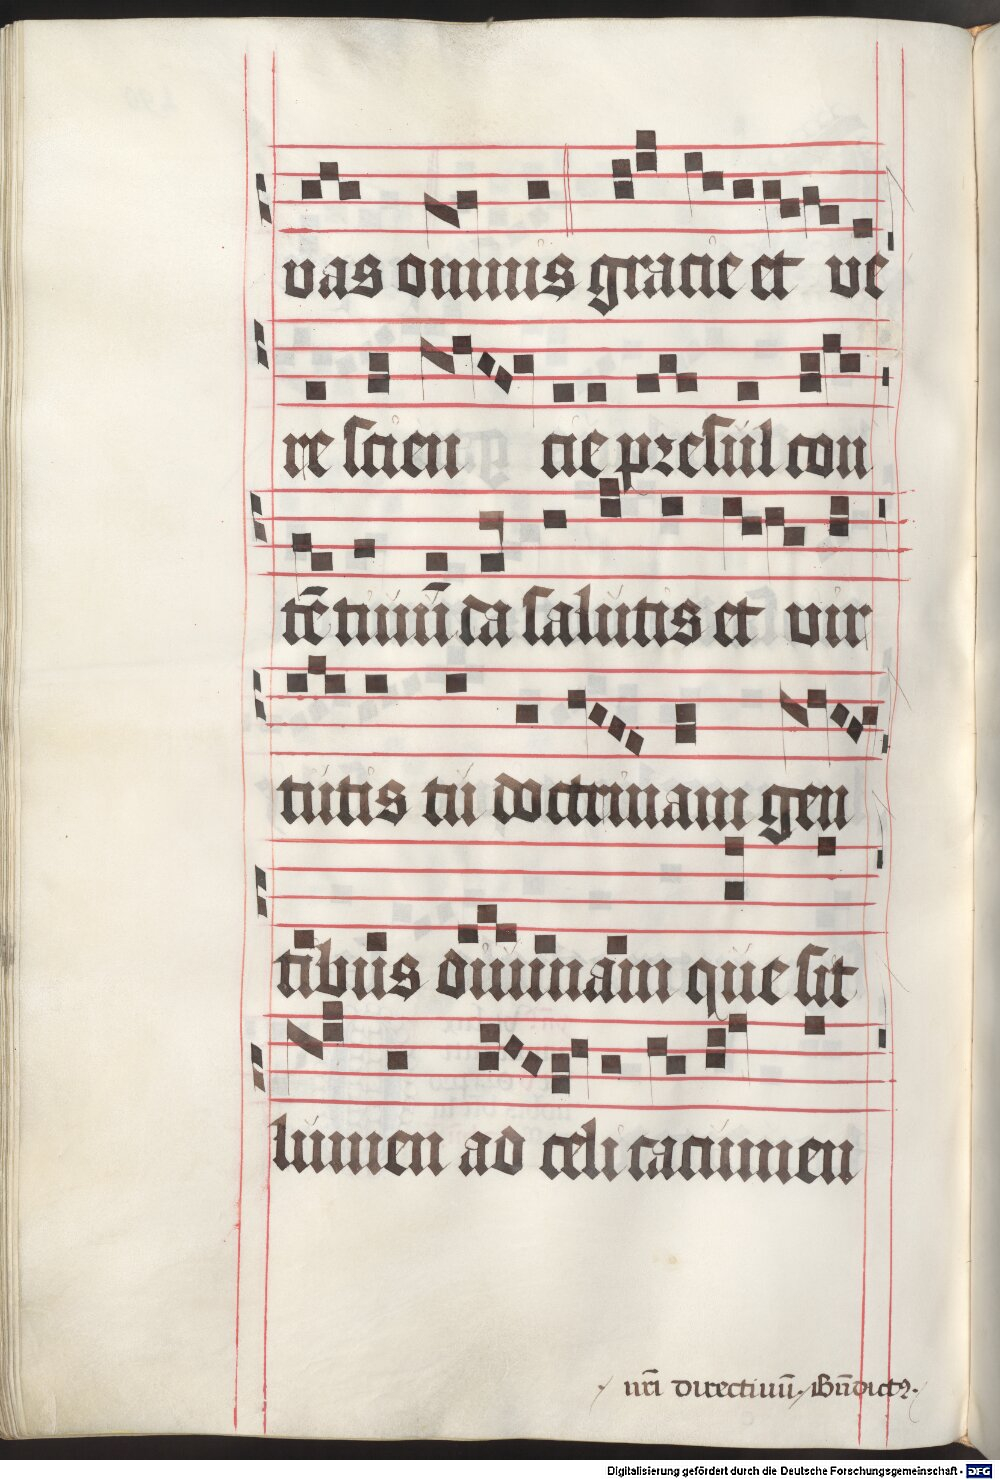 vas omnis gracie et ve
re scien cie presul con
tētiuū da salutis et vir
tutis tu doctrinam gen
tibus diuinam que sit
lumen ad celi cacumen
nr̄i directiuū Bn̄dictꝰ
Digitalisierung gefördert durch die Deutsche Forschungsgemeinschaft - DFG